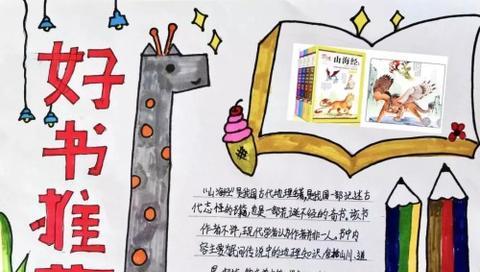 好书推荐
山海经
《山海经》是我国古代地理名著,是我国一部记述古
代志怪的古籍,也是一部荒诞不经的奇书。该书
作者不详,现代学者认为作者并非一人。书中内
容主要是民间传说中的地理知识,包括山川、道